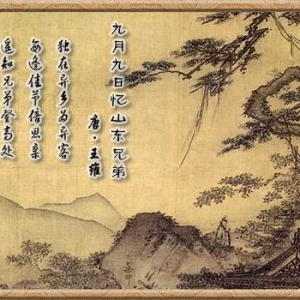 九月九日忆山东兄弟
唐·王维
独在异乡为异客
每逢佳节倍思亲
遥知兄弟登高处